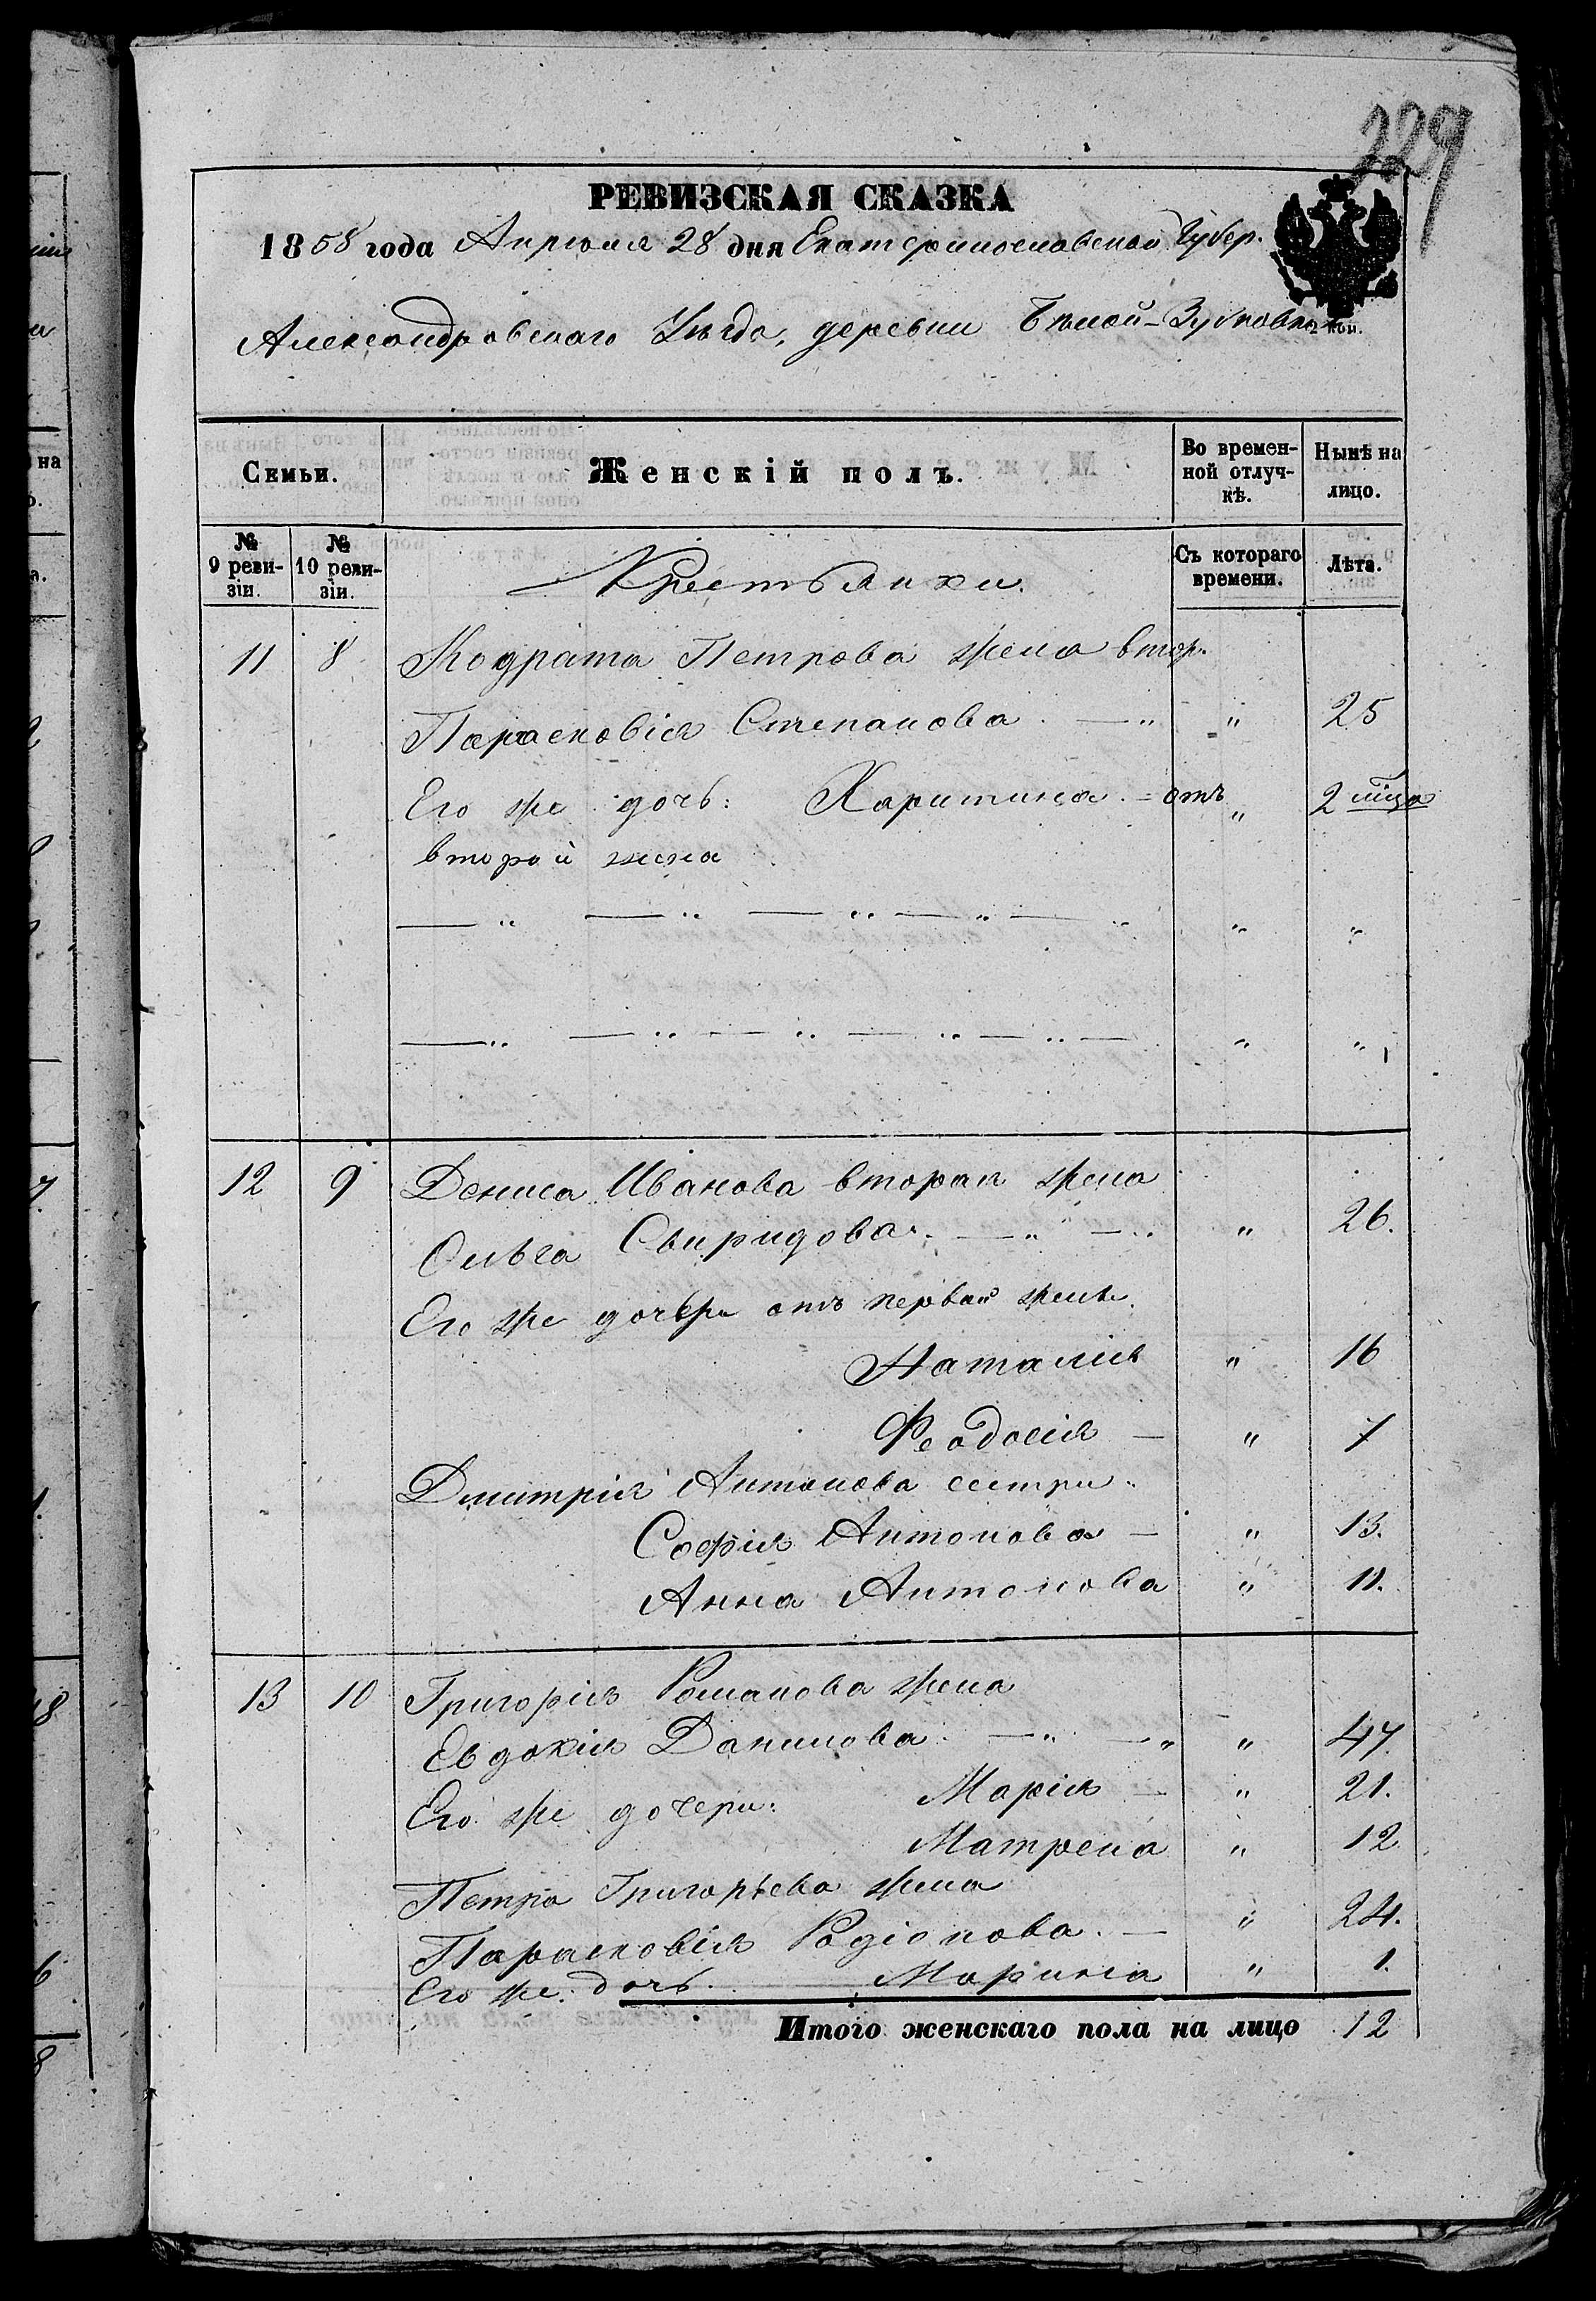 229
РЕВИЗСКАЯ СКАЗКА
1858 года Апреля 28 дня Екатеринославской Губер.
Александровскаго Уезда, деревни Белой-
коп.
Семьи.
Женскій полъ.
Во времен-
ной отлуч-
кѣ.
Нынѣ на
лицо.
№
9 реви-
зіи.
№
10 реви-
зіи.
Крестьянки.
Съ котораго
времени.
Лѣта.
11 8 Кодрата Петрова жена втор.
Парасковія Степанова. — " " 25
Его же дочь: Харитина. = отъ " 2 мца
второй жена
— " — " — " — " — " " "
— " — " — " — " — " — " "
12 9 Дениса Иванова вторая жена
Ольга Свиридова. — " — " " 26.
Его же дочери отъ первой жены.
Наталія " 16
Феодосія — " 7
Дмитрія Антонова сестры.
Софія Антонова — " 13.
Анна Антонова " 11.
13 10 Григорія Романова жена
Евдокія Данилова. — " — " " 47.
Его же дочери: Марія — " 21.
Матрена " 12
Петра Григорьева жена
Парасковія Родіонова. — " 24.
Его же дочь. Марина " 1.
Итого женскаго пола на лицо 12